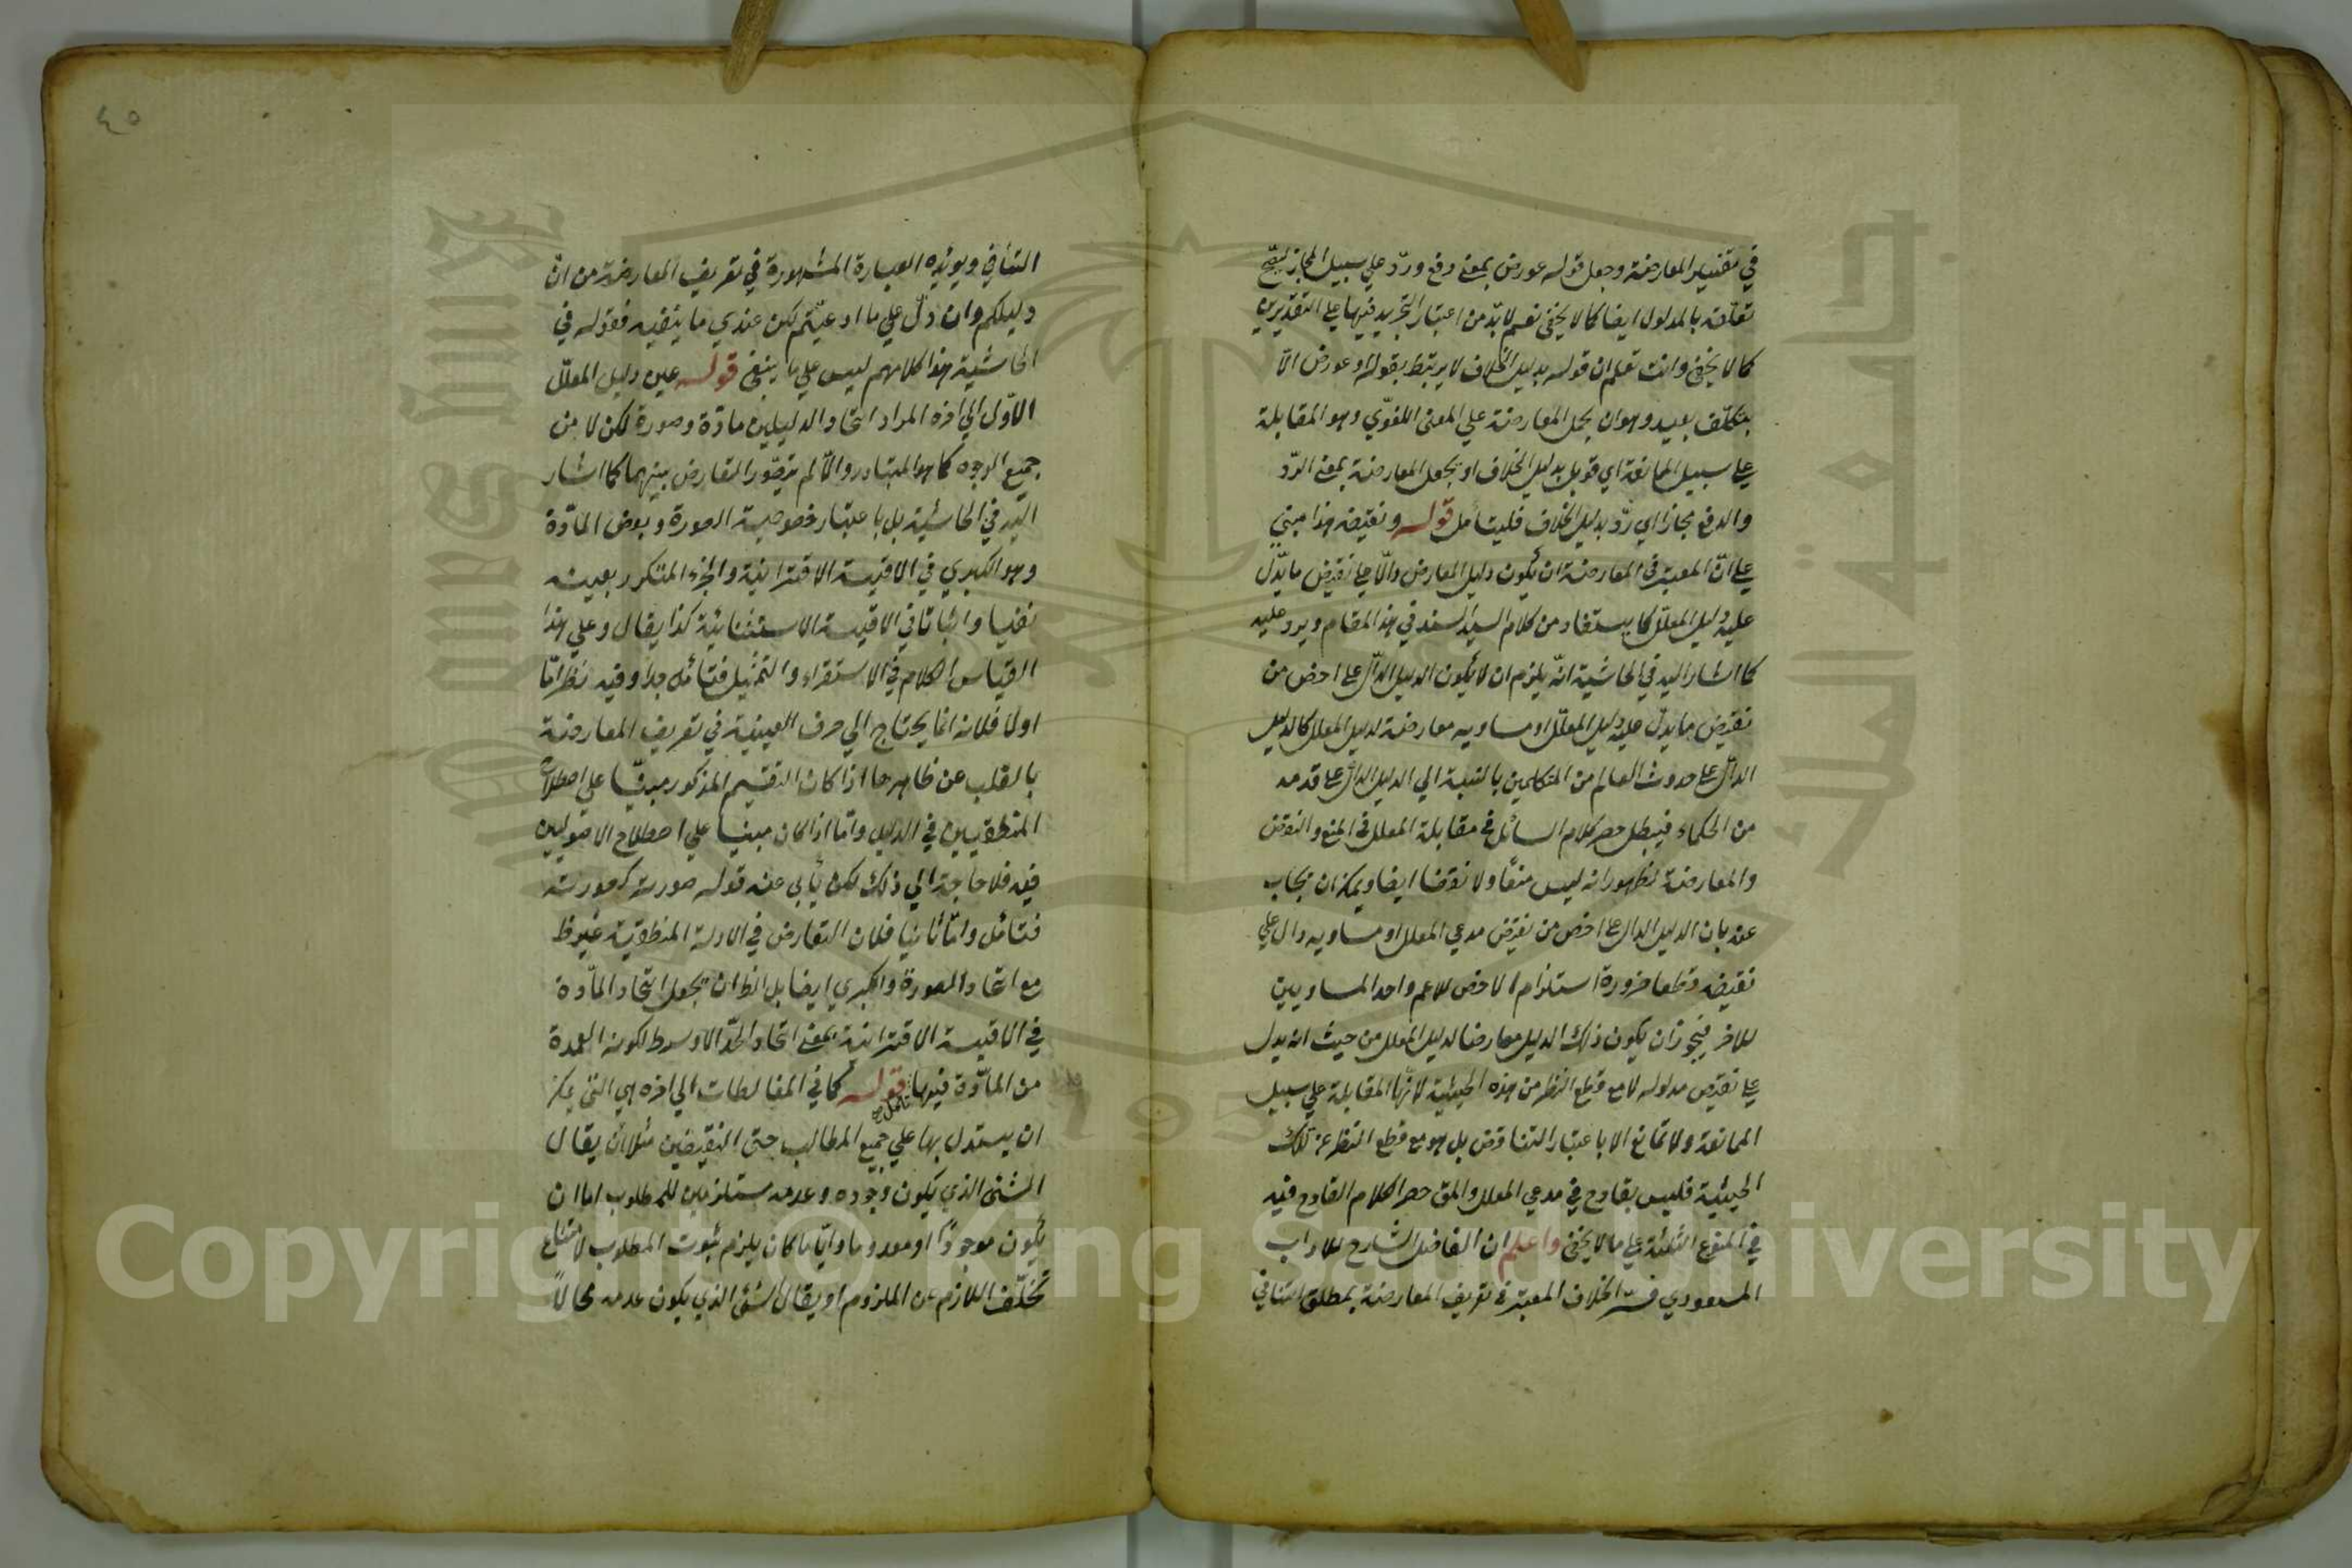 في تفسير المعارضة وجعل قوله عورض بمعنى دفع وردّ علي سبيل المجاز لصحّ
تعلّقه بالمدلول ايضا كما لا يخفى نعم لا بدّ من اعتبار التجريد فيها على التقديرين
كما لا يخفى وانت تعلم ان قوله بدليل الخلاف لا يرتبط بقوله او عورض الّا
بتكلّف بعيد وهو ان يحمل المعارضة علي المعنى اللغوّي وهو المقابلة
على سبيل الممانعة اي قوبل بدليل الخلاف او يجعل المعارضة بمعنى الردّ
والدفع مجازا اي ردّ بدليل الخلاف فليتأمل قوله ونقيضه هذا مبني
على انّ المعتبر في المعارضة ان يكون دليل المعارض دالّا على نقيض ما يدّل
عليه دليل المعلّل كما يستفاد من كلام السيد السند في هذا المقام ويرد عليه
كما اشار اليه في الحاشية انّه يلزم ان لا يكون الدليل الدالّ على اخص من
نقيض ما يدلّ عليه دليل المعلّل او مساويه معارضة لدليل المعلل كالدليل
الدالّ على حدوث العالم من المتكلمين بالنسبة الي الدليل الدالّ على قدمه
من الحكماء فيبطل حصر كلام السائل في مقابلة المعلل في المنع والنقض
والمعارضة لظهور انه ليس منعًا ولا نقضا ايضا ويمكن ان يجاب
عنه بان الدليل الدال على اخص من نقيض مدعي المعلل او مساويه دال علي
نقيضه قطعا ضرورة استلزام الاخص للاعم واحد المساويين
للاخر فيجوز ان يكون ذلك الدليل معارضا لدليل المعلل من حيث انه يدل
على نقيض مدلوله لا مع قطع النظر من هذه الحيثية لانّها المقابلة علي سبيل
الممانعة ولا تمانع الا باعتبار التناقض بل هو مع قطع النظر عن تلك
الحيثية فليس بقادح في مدعي المعلل والمق حصر الكلام القادح فيه
في المنوع الثلثة على ما لا يخفى واعلم ان الفاضل الشارح للاداب
المسعودي فسّر الخلاف المعتبر في تعريف المعارضة بمطلق التنافي
٤٥
التنافي ويويّده العبارة المشهورة في تعريف المعارضة من انّ
دليلكم وان دلّ علي ما ادعيتم لكن عندي ما ينفيه فقوله في
الحاشية هذا كلامهم ليس علي ما ينبغي قوله عين دليل المعلّل
الاوّل الي اخره المراد اتحاد الدليلين مادّة وصورة لكن لا من
جميع الوجوه كما هو المتبادر والّا لم يتصّور التعارض بينهما كما اشار
اليه في الحاشية بل باعتبار خصوصية الصورة وبعض المادّة
وهو الكبري في الاقيسة الاقترانية والجزء المتكرر بعينه
نفيا واثباتا في الاقيسة الاستثنائية كذا يقال وعلي هذا
القياس الكلام في الاستقراء والتمثيل فتأمّل جدا وفيه نظر امّا
اولا فلانه انما يحتاج الي صرف العينية في تعريف المعارضة
بالقلب عن ظاهرها اذا كان التقسيم المذكور مبنيّا علي اصطلاح
المنطقيين في الدليل وامّا اذا كان مبنيا علي اصطلاح الاصوليين
فيه فلا حاجة الي ذلك لكن يأبى عنه قوله صورته كصورته
فتأمّل وامّا ثانيا فلان التعارض في الادلة المنطقية غير ظ
مع اتحاد الصورة والكبري ايضا بل الظ ان يجعل اتحاد المادّة
في الاقيسة الاقترانية بمعنى اتحاد الحدّ الاوسط لكونه العمدة
من المادّة فيها تأمل صح قوله كما في المغالطات الي اخره هي التي يمكن
ان يستدل بها علي جميع المطالب حتى النقيضين مثلا أن يقال
الشئ الذي يكون وجوده وعدمه مستلزمين للمطلوب اما ان
يكون موجودًا او معدوما وايّا ما كان يلزم ثبوت المطلوب لامتناع
تخلّف اللازم عن الملزوم او يقال الشئ الذي يكون عدمه محالًا
Copyright © King Saud University